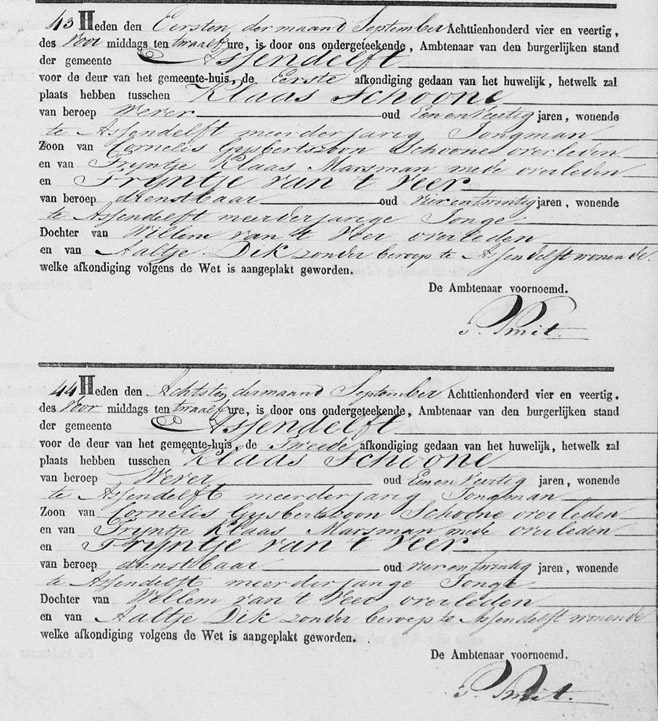 43 Heden den Eersten der maand September Achttienhonderd vier en veertig,
des Voor middags ten twaalf ure, is door ons ondergeteekende, Ambtenaar van den burgerlijken stand
der gemeente Assendelft
voor de deur van het gemeente-huis, de Eerste afkondiging gedaan van het huwelijk, hetwelk zal
plaats hebben tusschen Klaas Schoone
van beroep Wever oud Een en Veertig jaren, wonende
te Assendelft meerderjarig Jongman
Zoon van Cornelis Gijsbertszoon Schoone overleden
en van Trijntje Klaas Marsman mede overleden
en Trijntje van 't Veer
van beroep dienstbaar oud vier en twintig jaren, wonende
te Assendelft meerderjarige Jonge
Dochter van Willem van 't Veer overleden
en van Aaltje Dik zonder beroep te Assendelft wonende.
welke afkondiging volgens de Wet is aangeplakt geworden.
De Ambtenaar voornoemd.
P. Smit.
44 Heden den Achtsten der maand September Achttienhonderd vier en veertig.
des Voor middags ten twaalf ure, is door ons ondergeteekende, Ambtenaar van den burgerlijken stand
der gemeente Assendelft
voor de deur van het gemeente-huis, de Tweede afkondiging gedaan van het huwelijk, hetwelk zal
plaats hebben tusschen Klaas Schoone
van beroep Wever oud Een en Veertig jaren, wonende
te Assendelft meerderjarig Jongman
Zoon van Cornelis Gijsbertszoon Schoone overleden
en van Trijntje Klaas Marsman mede overleden
en Trijntje van 't Veer
van beroep dienstbaar oud vier en twintig jaren, wonende
te Assendelft meerderjarige Jonge
Dochter van Willem van 't Veer overleden
en van Aaltje Dik zonder beroep te Assendelft wonende
welke afkondiging volgens de Wet is aangeplakt geworden.
De Ambtenaar voornoemd.
P. Smit.